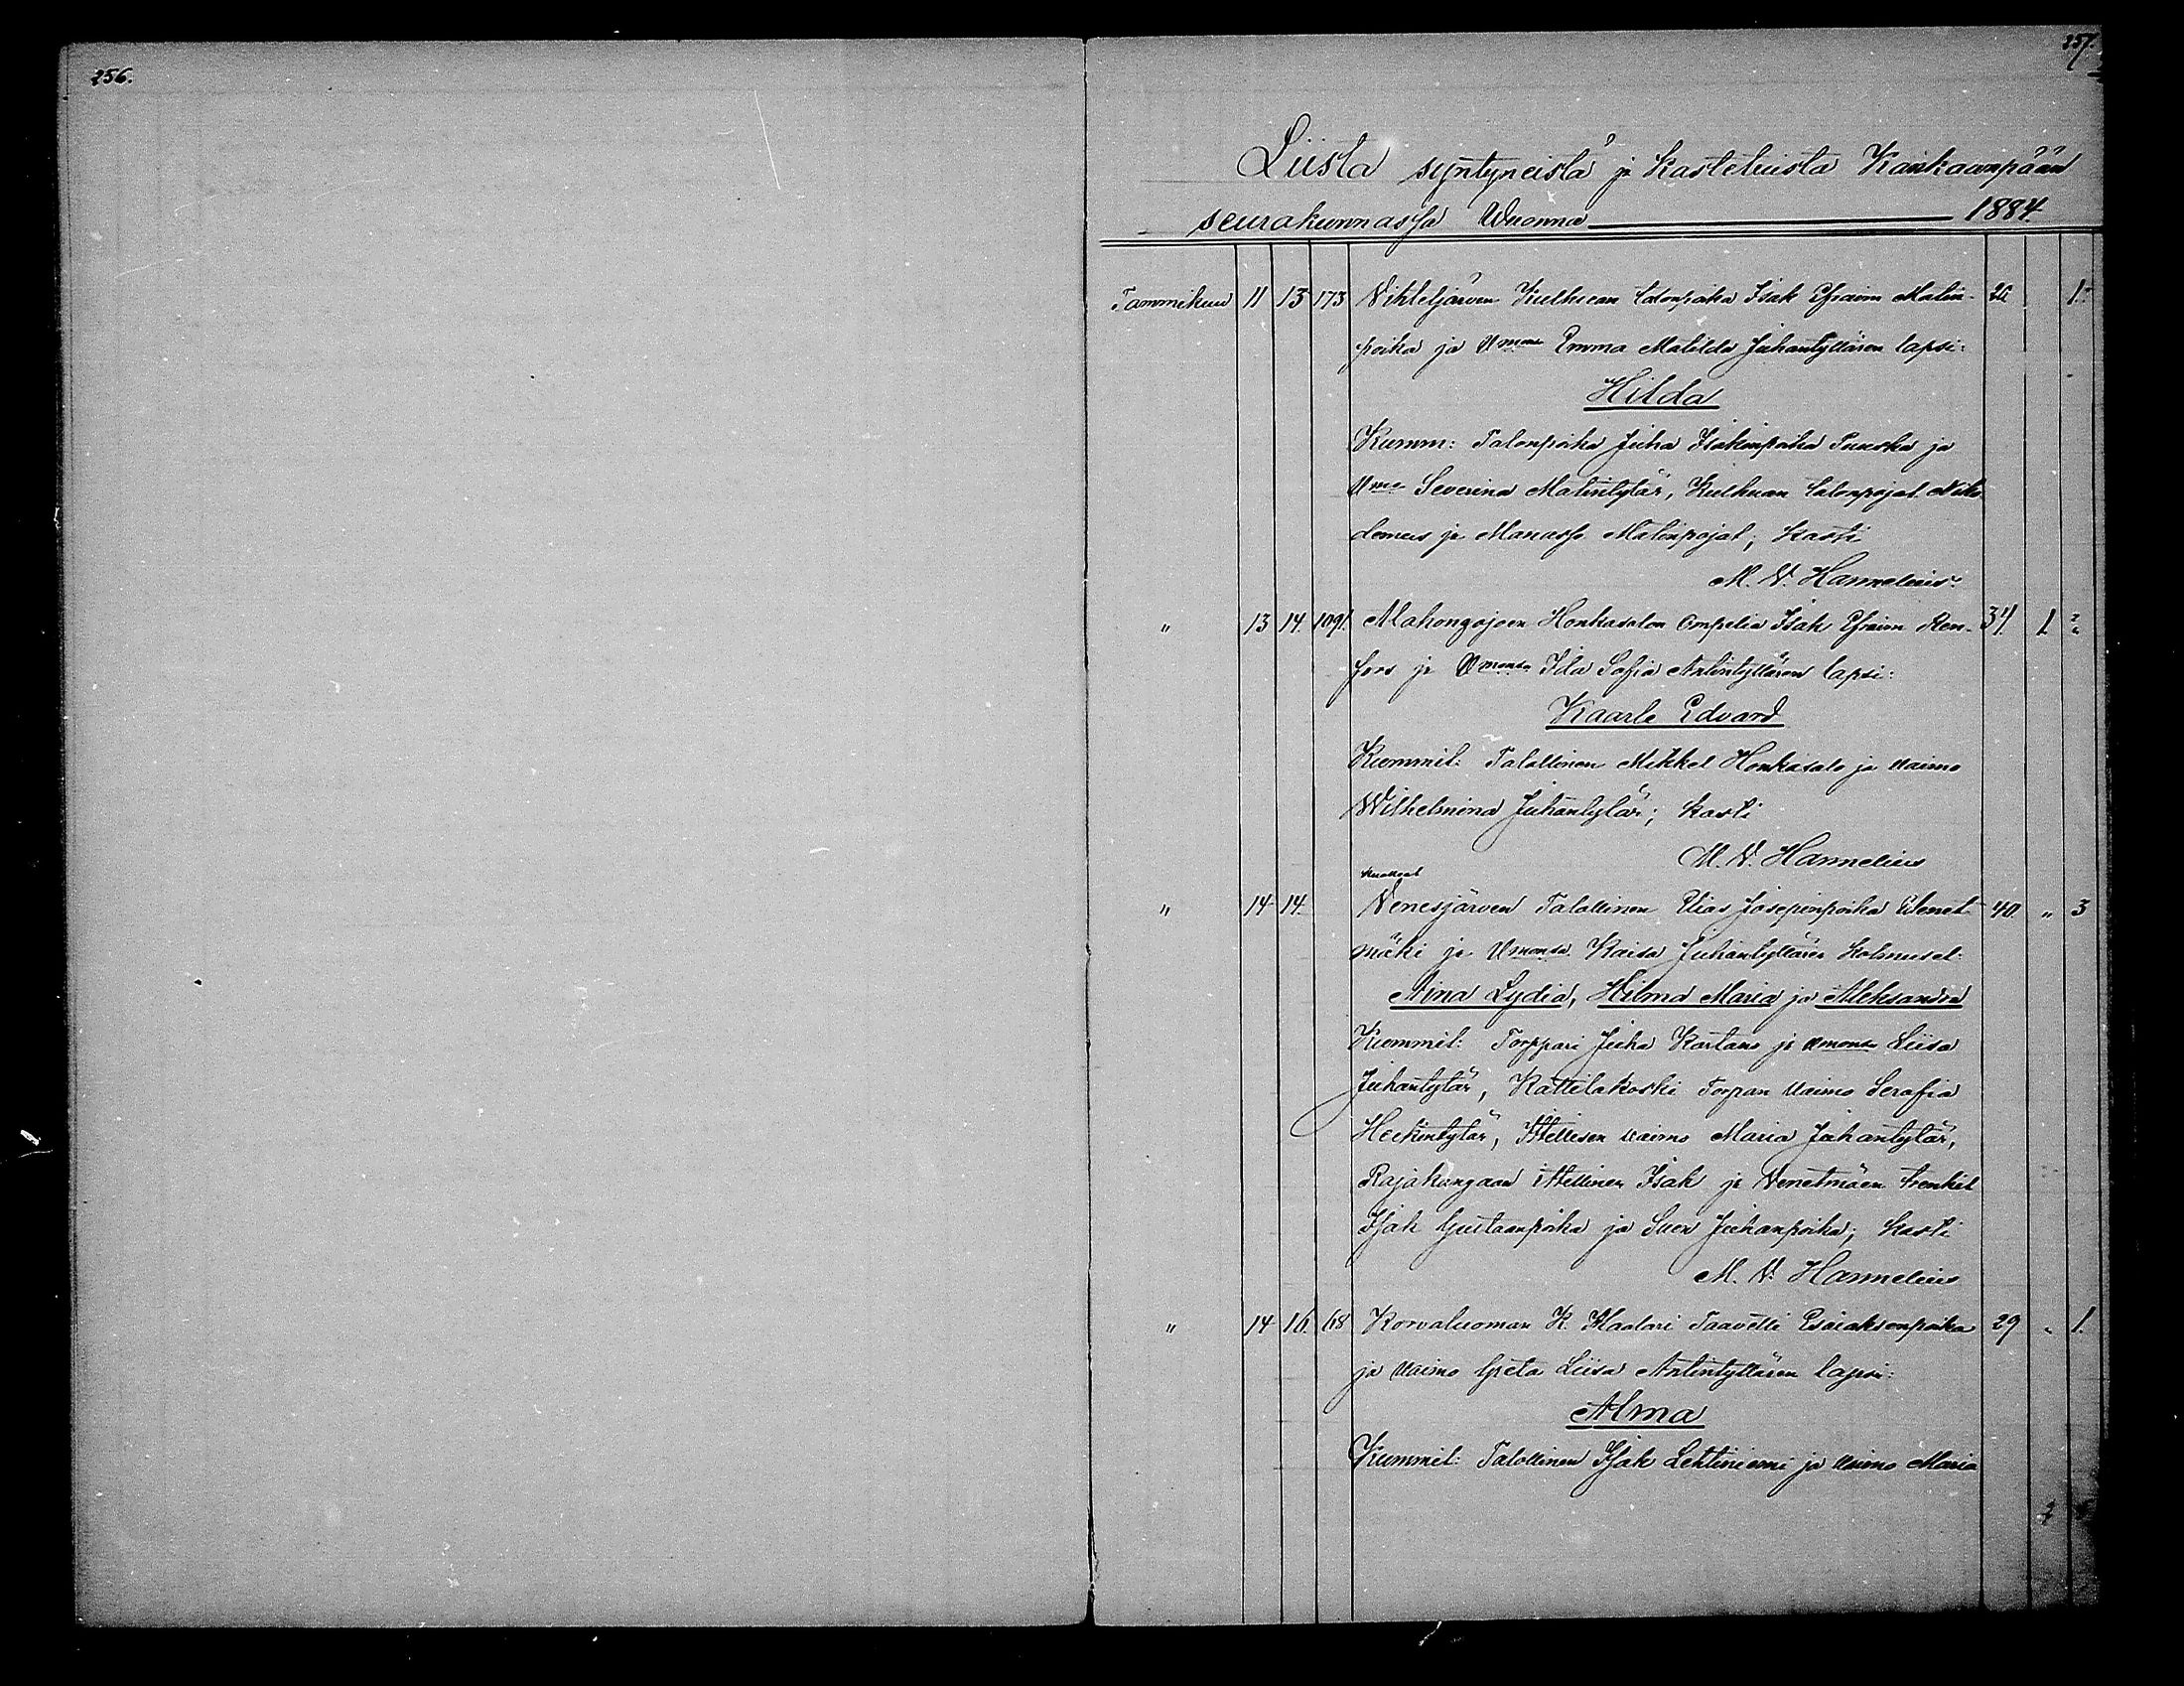 256.
257.
Liista syntyneistä ja kastetuista Kankaanpään
seurakunnassa Wuonna 1884
Tammikuu 11 13 173 Vihteljärven Kulhuan talonpoika Isak Efraim Matin- 26 1.
poika ja Vmonsa Emma Matilda Juhantyttären lapsi:
Hilda
Kumm: Talonpoika Juha Isakinpoika Puuska ja
Vmo Severina Matintytär, Kulhuan talonpojat Niko
demus ja Manasse Matinpojat; kasti
M. V. Hannelius.
" 13 14. 1091. Mahongojoen Honkasalon ompelia Isak Efraim Ren- 34. 1 "
fors ja Vmonsa Ida Sofia Antintyttären lapsi:
Kaarle Edvard
Kummit: Talollinen Mikkel Honkasalo ja vaimo
Wilhelmina Juhantytär; kasti
M. V. Hannelius
" 14 14. Venesjärven Talollinen Elias Josepinpoika Venet- 40. " 3
mäki ja Vmonsa Kaisa Juhantyttären kolmuset:
Aina Lydia, Hilma Maria ja Aleksandra
Kummit: Torppari Juha Kartano ja vmonsa Liisa
Juhantytär, Kattilakoski Torpan vaimo Serafia
Heikintytär, Itellisen vaimo Maria Juhantytär,
Rajakangaan itellinen Isak ja Venetmäen trenkit
Isak Gustaanpoika ja Sven Juhanpoika; kasti
M. V. Hannelius
" 14 16 68 Korvaluoman K. Maalari Taavetti Esaiaksenpoika 29 " 1.
ja vaimo Greta Liisa Antintyttären lapsi:
Alma
Kummit: Talollinen Isak Lehtiniemi ja vaimo Maria